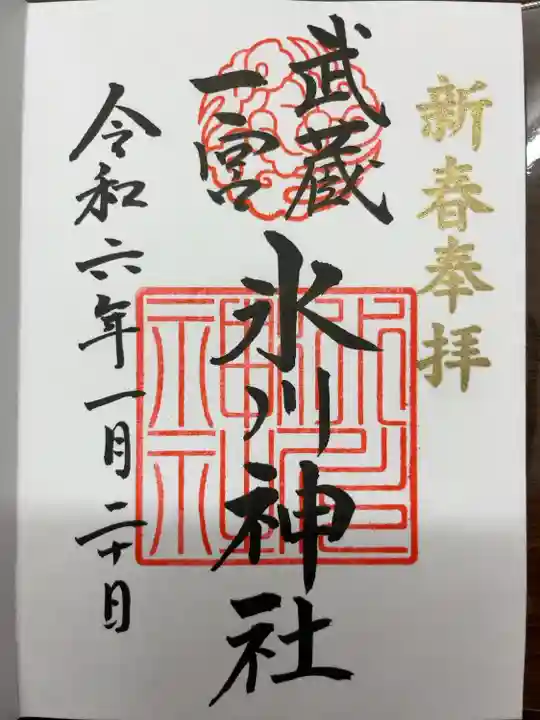 新春奉拝
武蔵
一宮
氷川神社
令和六年一月二十日